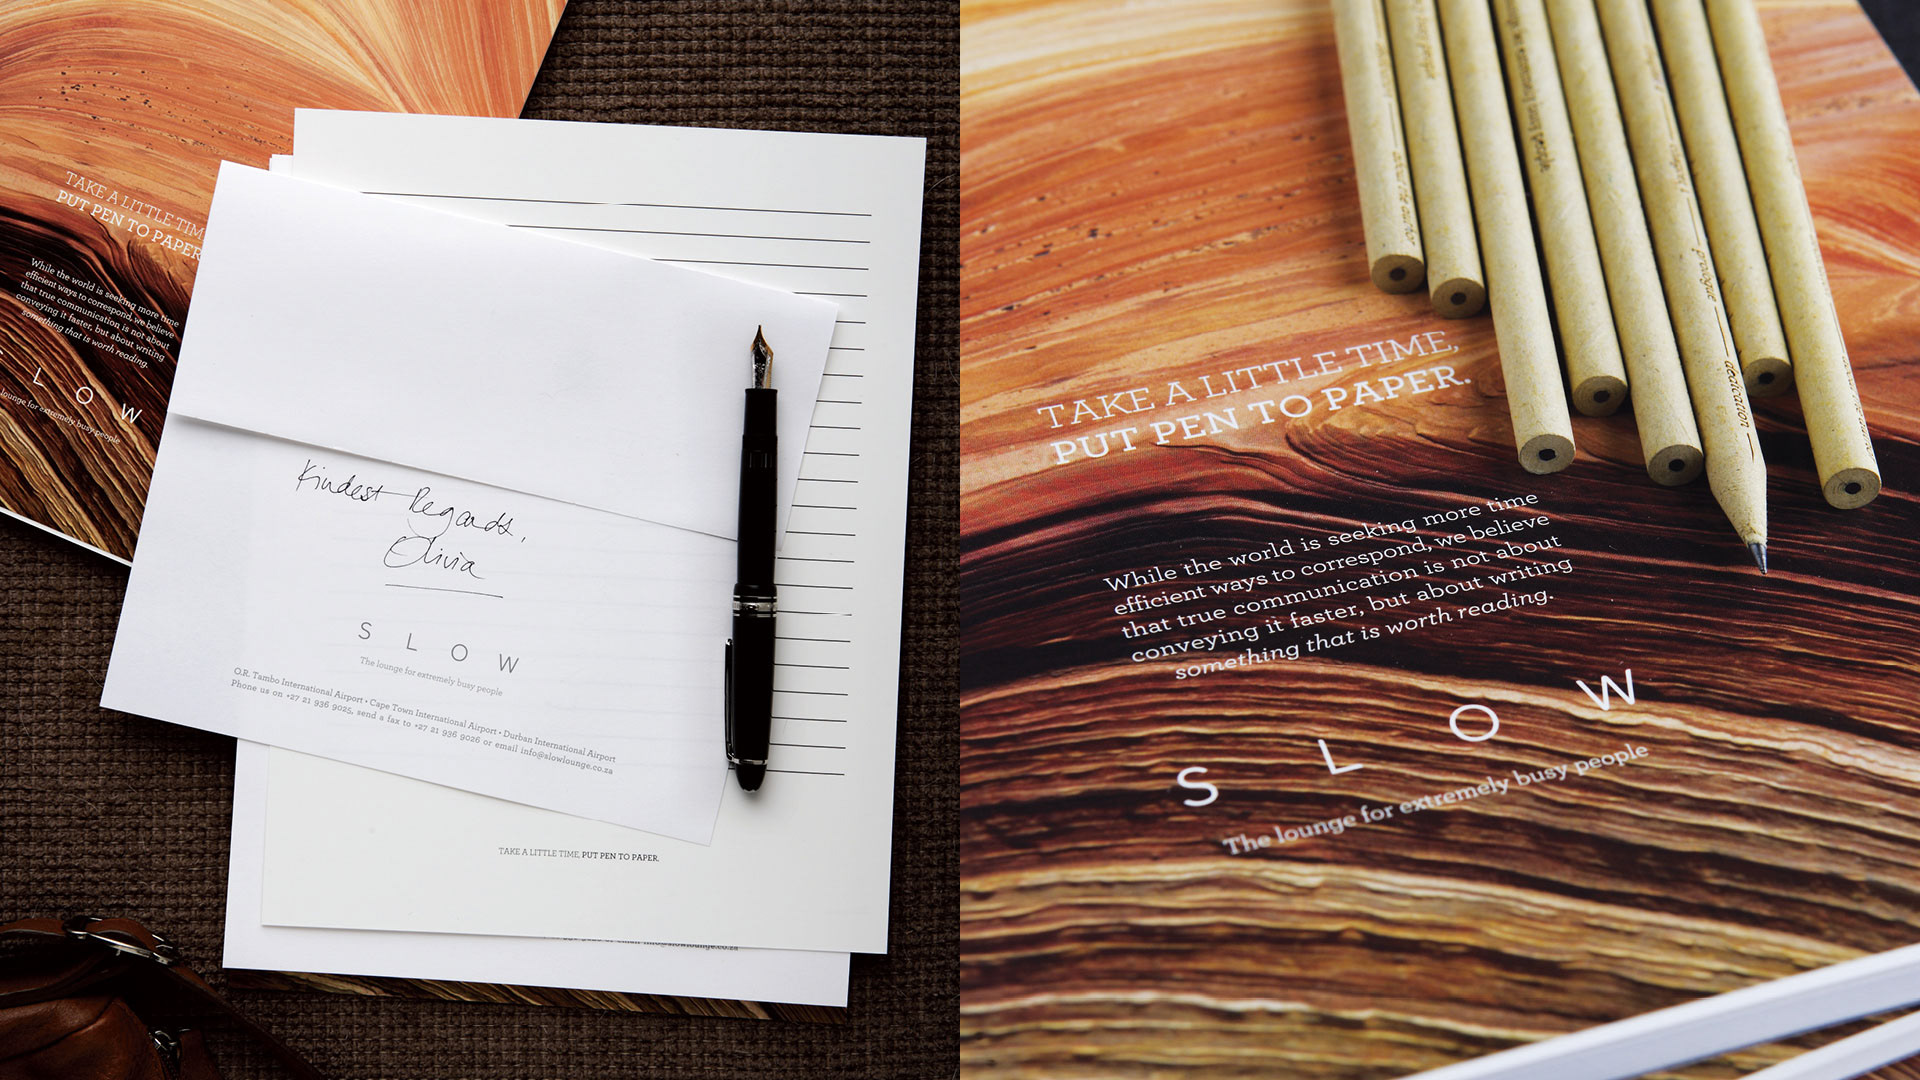 TAKE A LITTLE TIM
PUT PEN TO PAPER
While the world is seeking more time
efficient ways to correspond, we believe
that true communication is not about
conveying it faster, but about writing
something that is worth reading.
L O W
lounge for extremely busy people
Kindest Regards,
Olivia
S L O W
The lounge for extremely busy people
O.R. Tambo International Airport • Cape Town International Airport • Durban International Airport
Phone us on +27 21 936 9025, send a fax to +27 21 936 9026 or email info@slowlounge.co.za
TAKE A LITTLE TIME, PUT PEN TO PAPER.
email info@slowlounge.co.za
people
prologue
dedication
TAKE A LITTLE TIME,
PUT PEN TO PAPER.
While the world is seeking more time
efficient ways to correspond, we believe
that true communication is not about
conveying it faster, but about writing
something that is worth reading.
S L O W
The lounge for extremely busy people